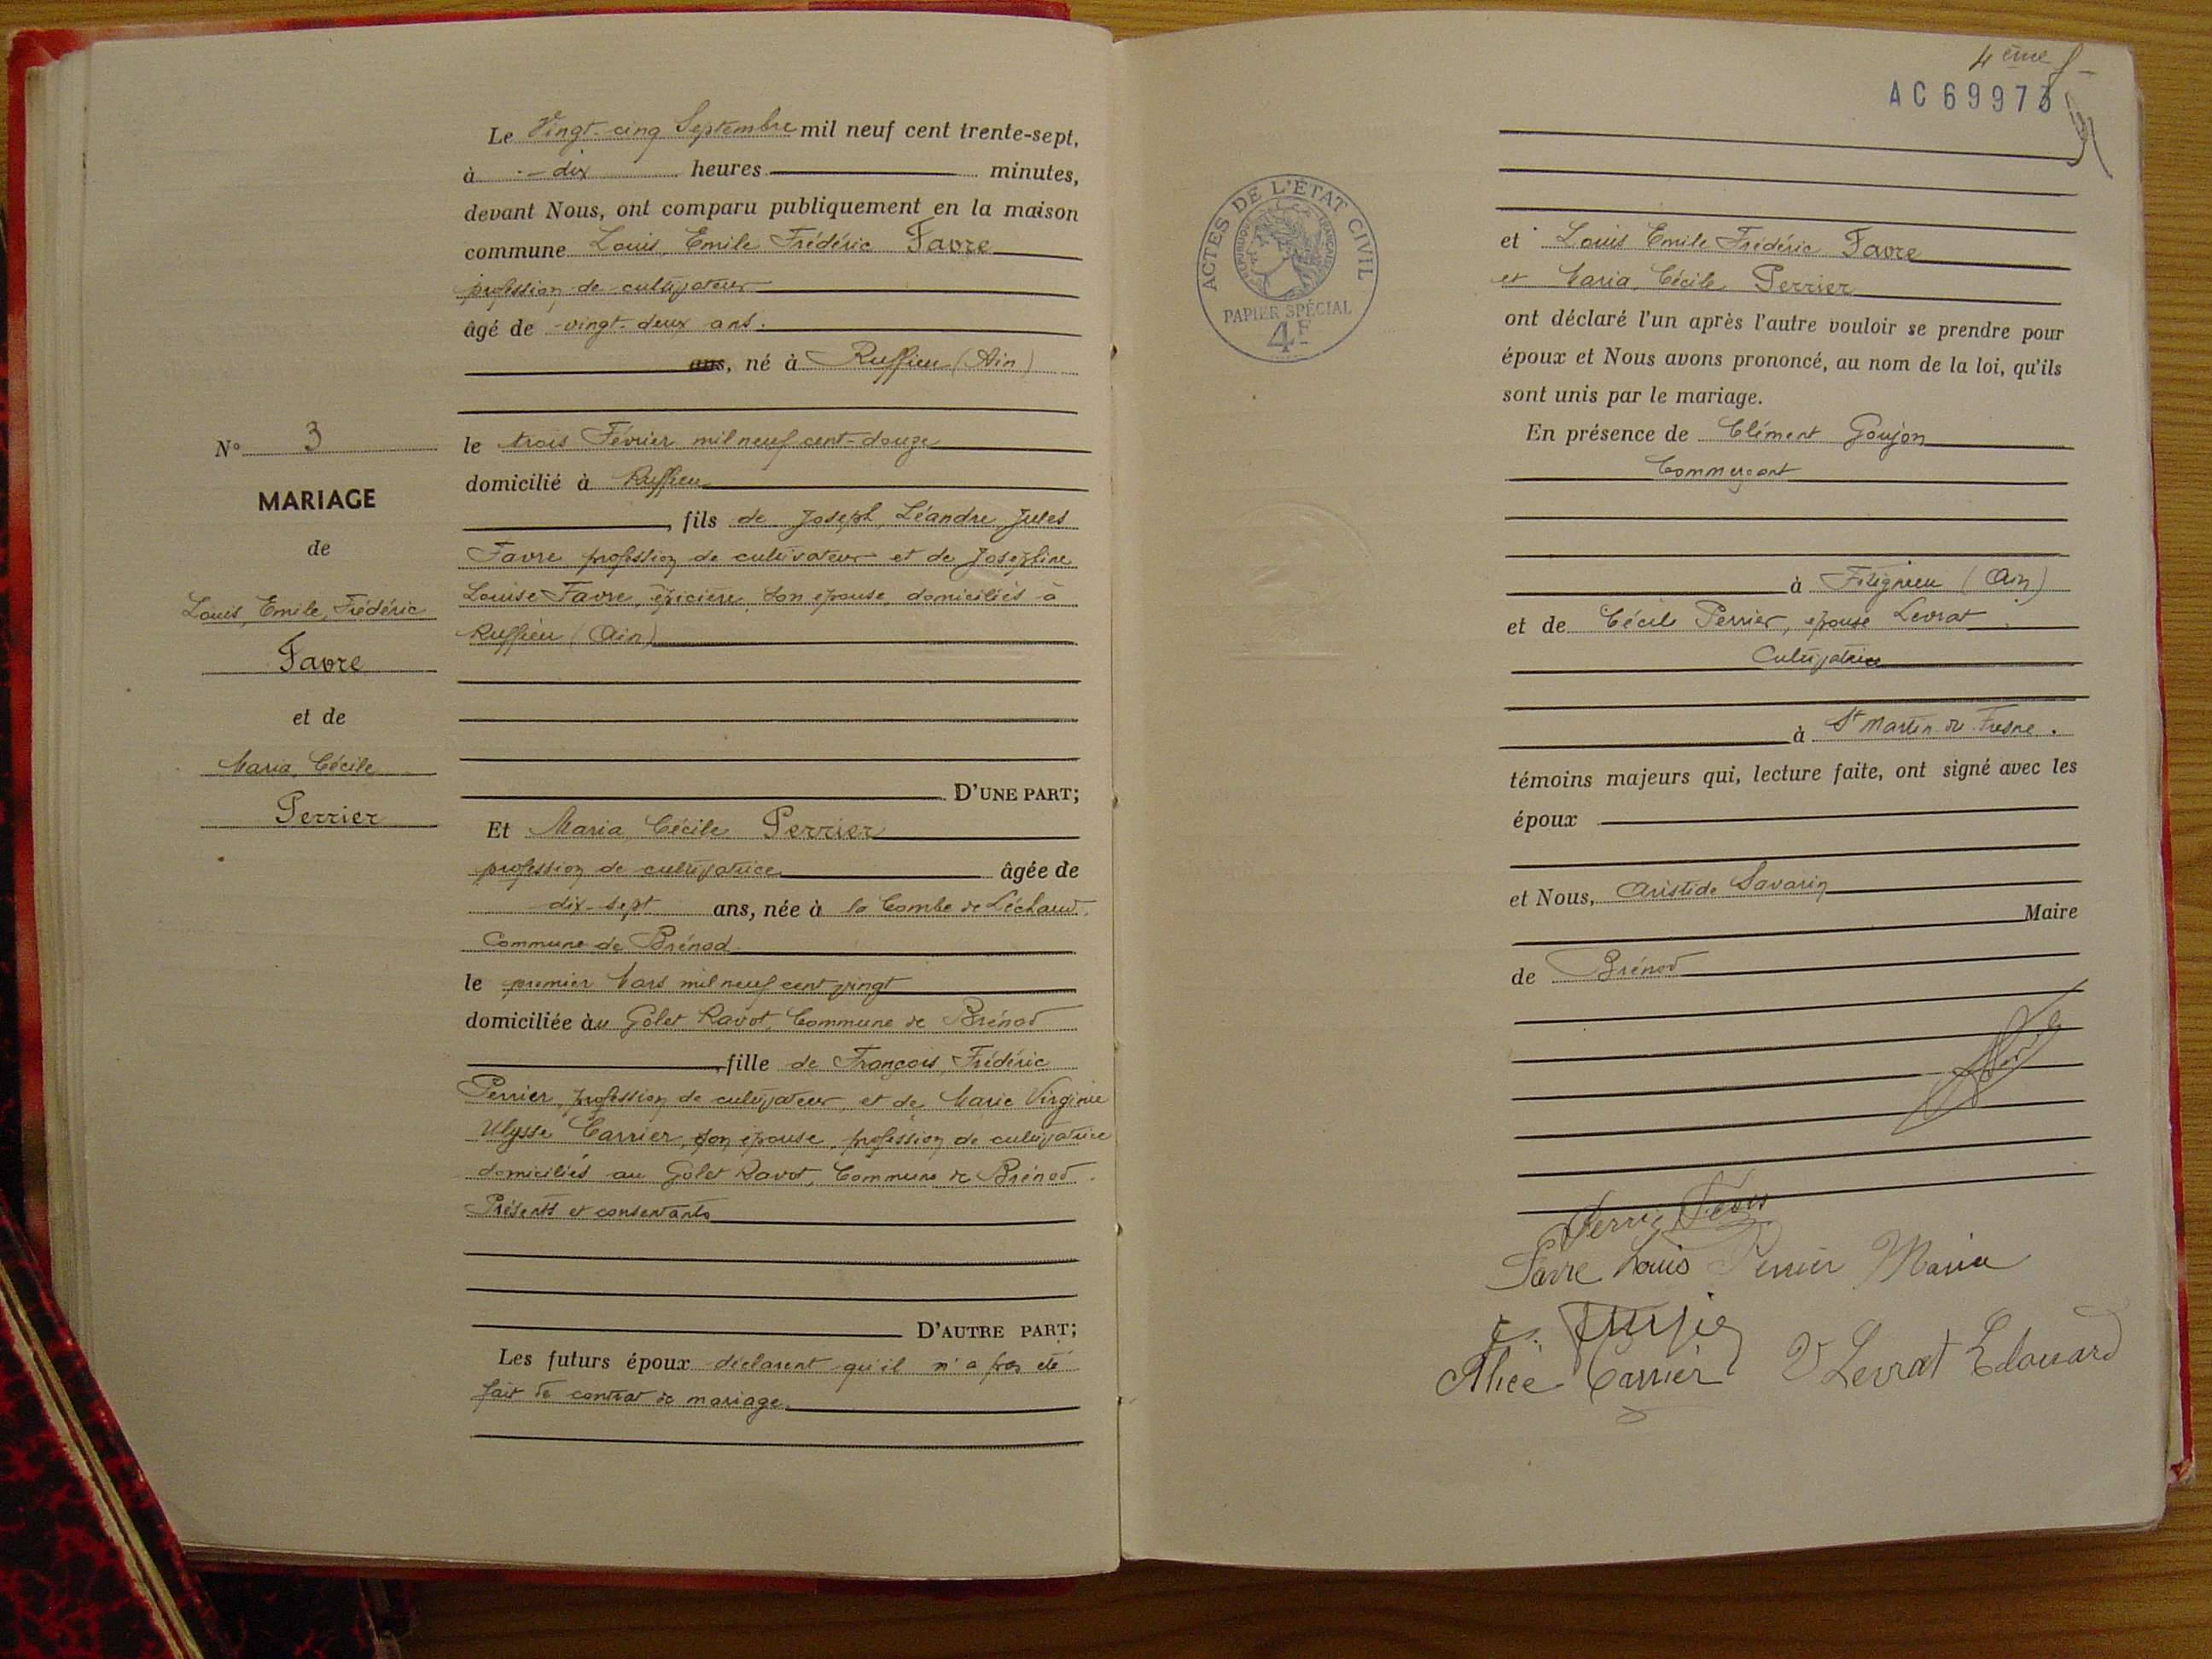 Le Vingt-cinq Septembre mil neuf cent trente-sept,
à dix heures minutes,
devant Nous, ont comparu publiquement en la maison
commune Louis, Emile Frédéric Favre
profession de cultivateur
âgé de vingt-deux ans.
ans, né à Ruffieu (Ain)
le trois Février mil neuf cent-douze
domicilié à Ruffieu
, fils de Joseph, Léandre Jules
Favre profession de cultivateur et de Joséphine
Louise Favre, épicière, son épouse, domiciliés à
Ruffieu (Ain)
D'UNE PART;
N° 3
MARIAGE
de
Louis, Emile, Frédéric
Favre
et de
Maria, Cécile
Perrier
Et Maria Cécile Perrier
profession de cultivatrice âgée de
dix-sept ans, née à la Combe de Léchaud.
Commune de Brénod
le premier Mars mil neuf cent vingt
domiciliée au Golet Ravot, Commune de Brénod
, fille de François, Frédéric
Perrier, profession de cultivateur, et de Marie Virginie
Ulysse Carrier, son épouse, profession de cultivatrice
domiciliés au Golet Ravot, Commune de Brénod.
Présents et consentants
D'AUTRE PART;
Les futurs époux déclarent qu'il n'a pas été
fait de contrat de mariage.
4ème
AC 69973
ACTES DE L'ÉTAT CIVIL
RÉPUBLIQUE FRANÇAISE
PAPIER SPÉCIAL
4F
et Louis Emile Frédéric Favre
et Maria, Cécile Perrier
ont déclaré l'un après l'autre vouloir se prendre pour
époux et Nous avons prononcé, au nom de la loi, qu'ils
sont unis par le mariage.
En présence de Clément Goujon
Commerçant
à Fitignieu (Ain)
et de Cécile Perrier, épouse Levrat
Cultivatrice
à St Martin du Fresne.
témoins majeurs qui, lecture faite, ont signé avec les
époux
et Nous, Aristide Savarin
Maire
de Brénod
Favre Louis Perrier Maria
Alice Carrier V Levrat Edouard